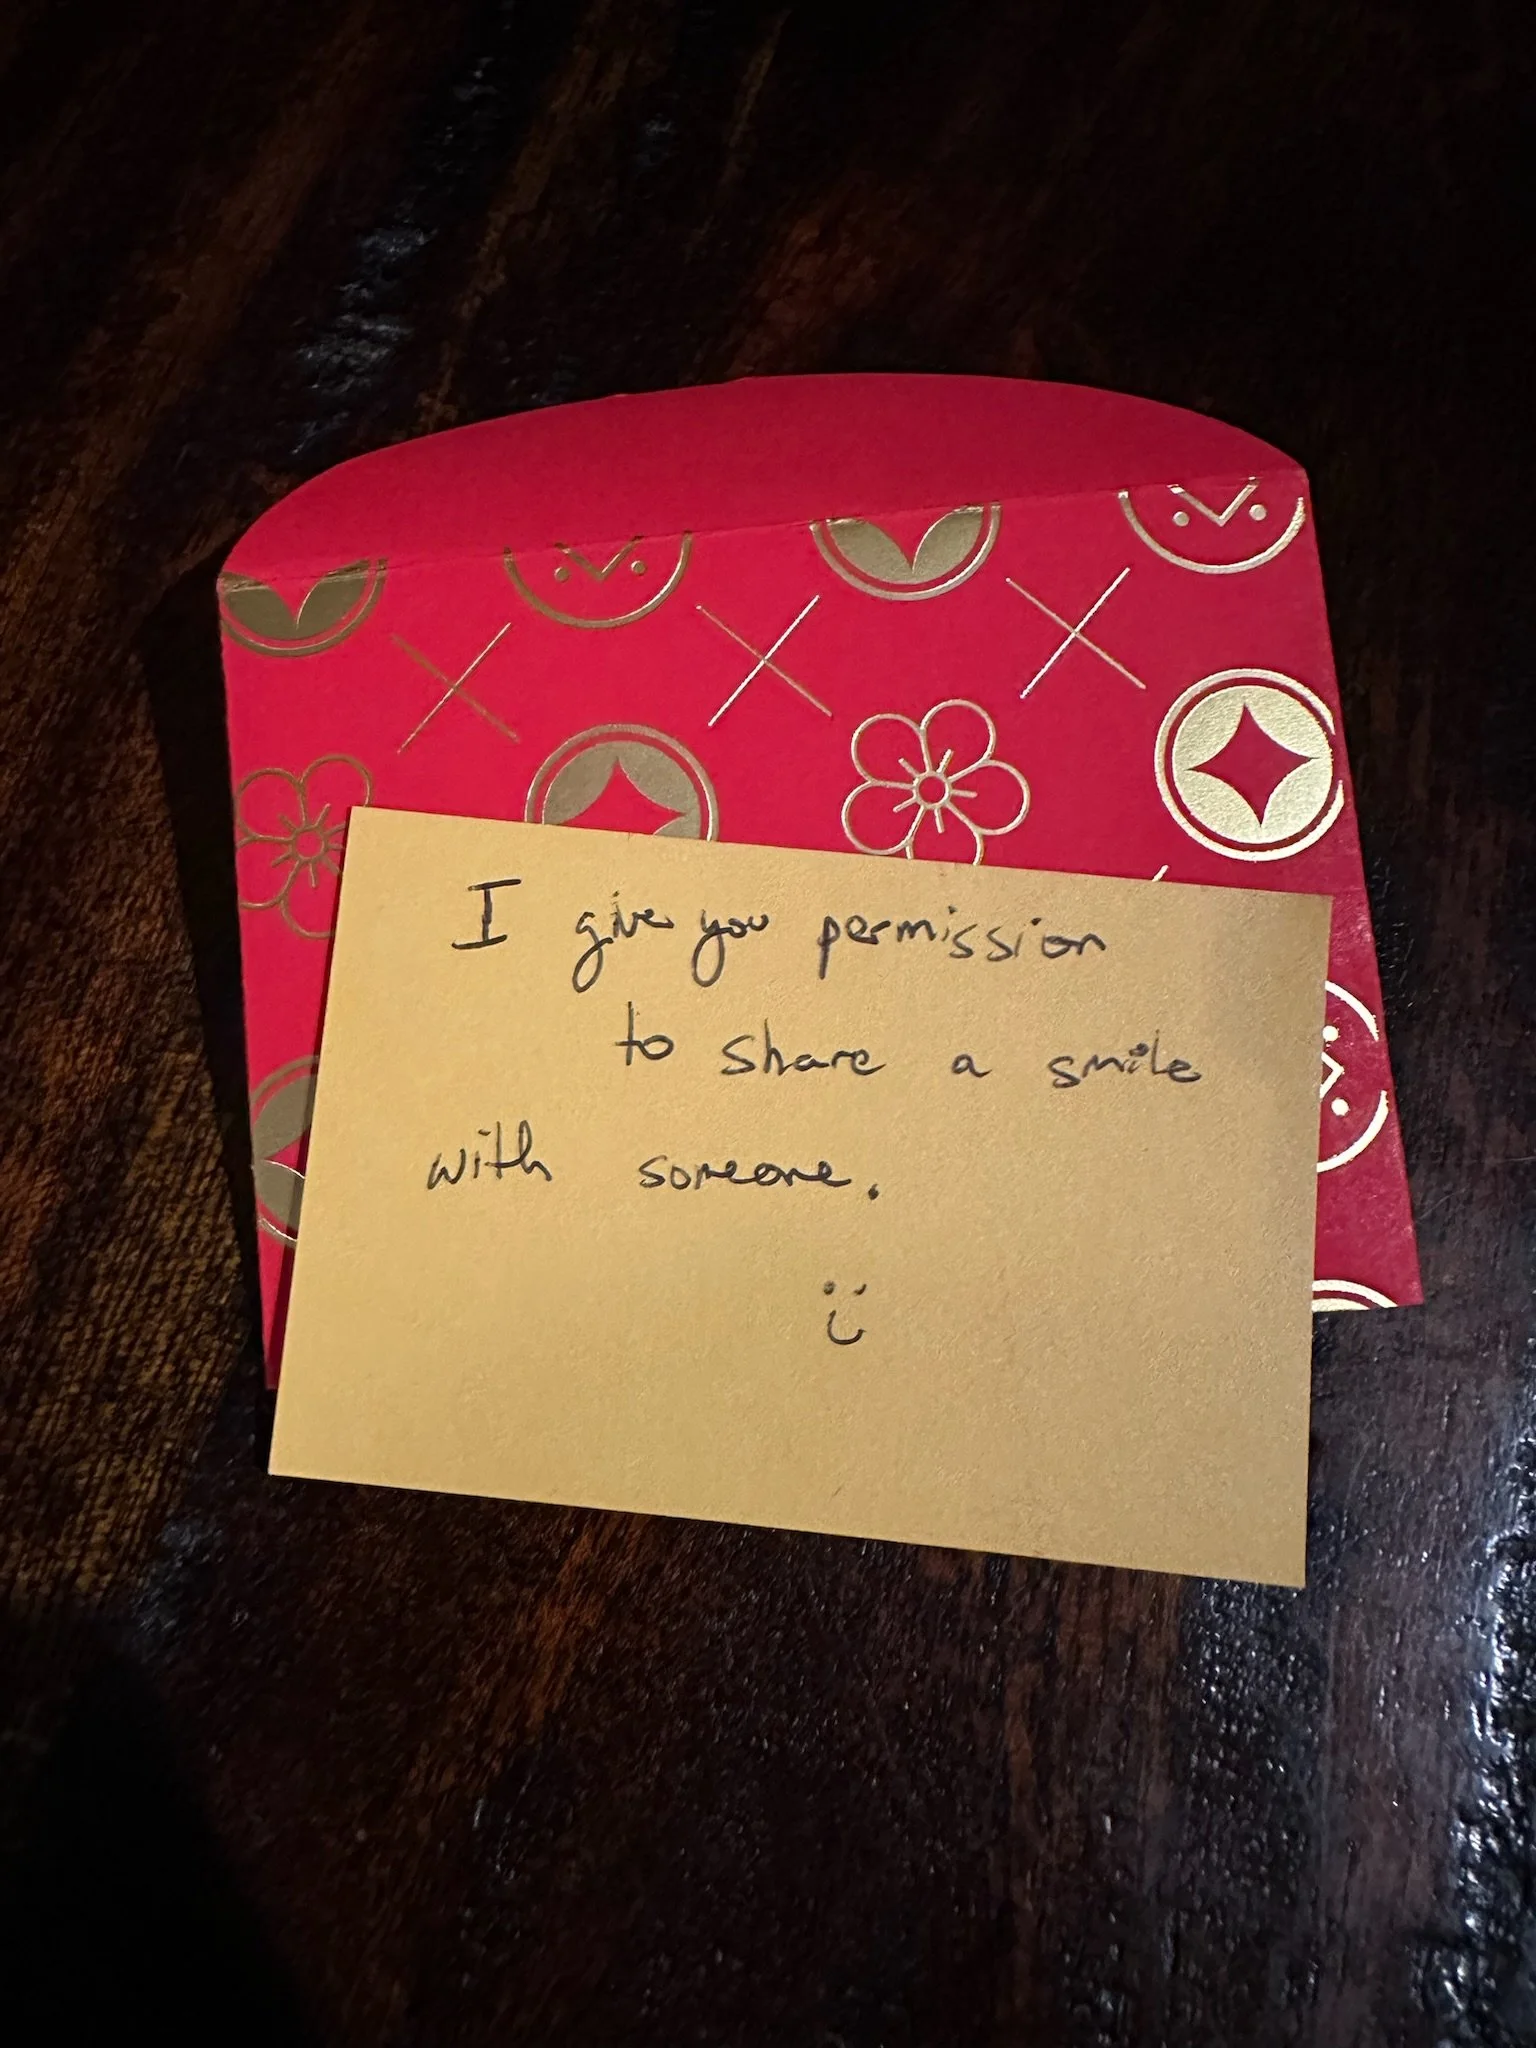 I give you permission
to share a smile
with someone.